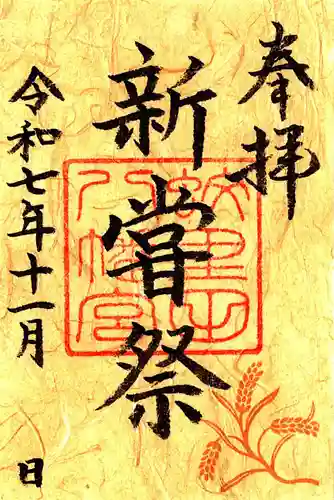 奉拝
新嘗祭
令和七年十一月 日
八幡宮